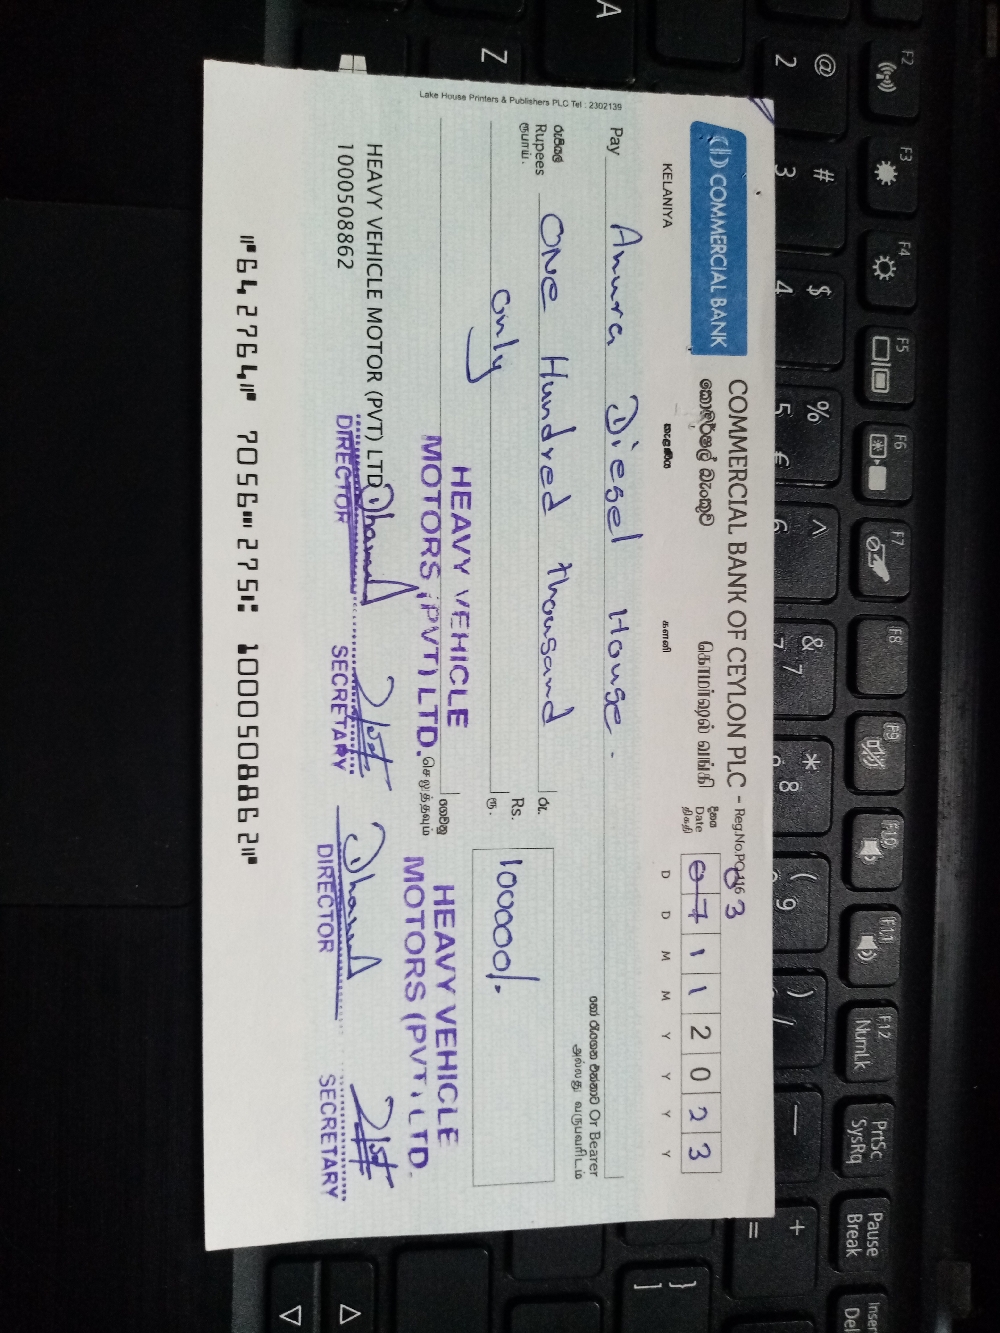 Lake House Printers & Publishers PLC Tel : 2302139
COMMERCIAL BANK
COMMERCIAL BANK OF CEYLON PLC - Reg.No.PQ 116
කොමර්ෂල් බැංකුව
கொமர்ஷல் வங்கி
KELANIYA
කැළණිය
களனி
දිනය
Date
திகதி
03
07112023
D D M M Y Y Y Y
Pay Anura Diesel House.
හෝ රැගෙන එන්නාට Or Bearer
அல்லது வருபவரிடம்
රුපියල්
Rupees One Hundred thousand
ரூபாய்.
only
රු.
Rs. 100000/-
ரூ.
ගෙවනු
செலுத்தவும்
HEAVY VEHICLE
MOTORS (PVT) LTD.
HEAVY VEHICLE
MOTORS (PVT) LTD.
HEAVY VEHICLE MOTOR (PVT) LTD
1000508862
DIRECTOR
SECRETARY
DIRECTOR
SECRETARY
⑈642764⑈ 7056⑉275⑆ 1000508862⑈
@
2
#
3
$
4
%
5
€
^
6
&
7
7
*
8
(
9
)
/
+
=
A
Z
}
]
F2
F3
F4
F5
F6
F7
F8
F9
F10
F11
F12
NumLk
PrtSc
SysRq
Pause
Break